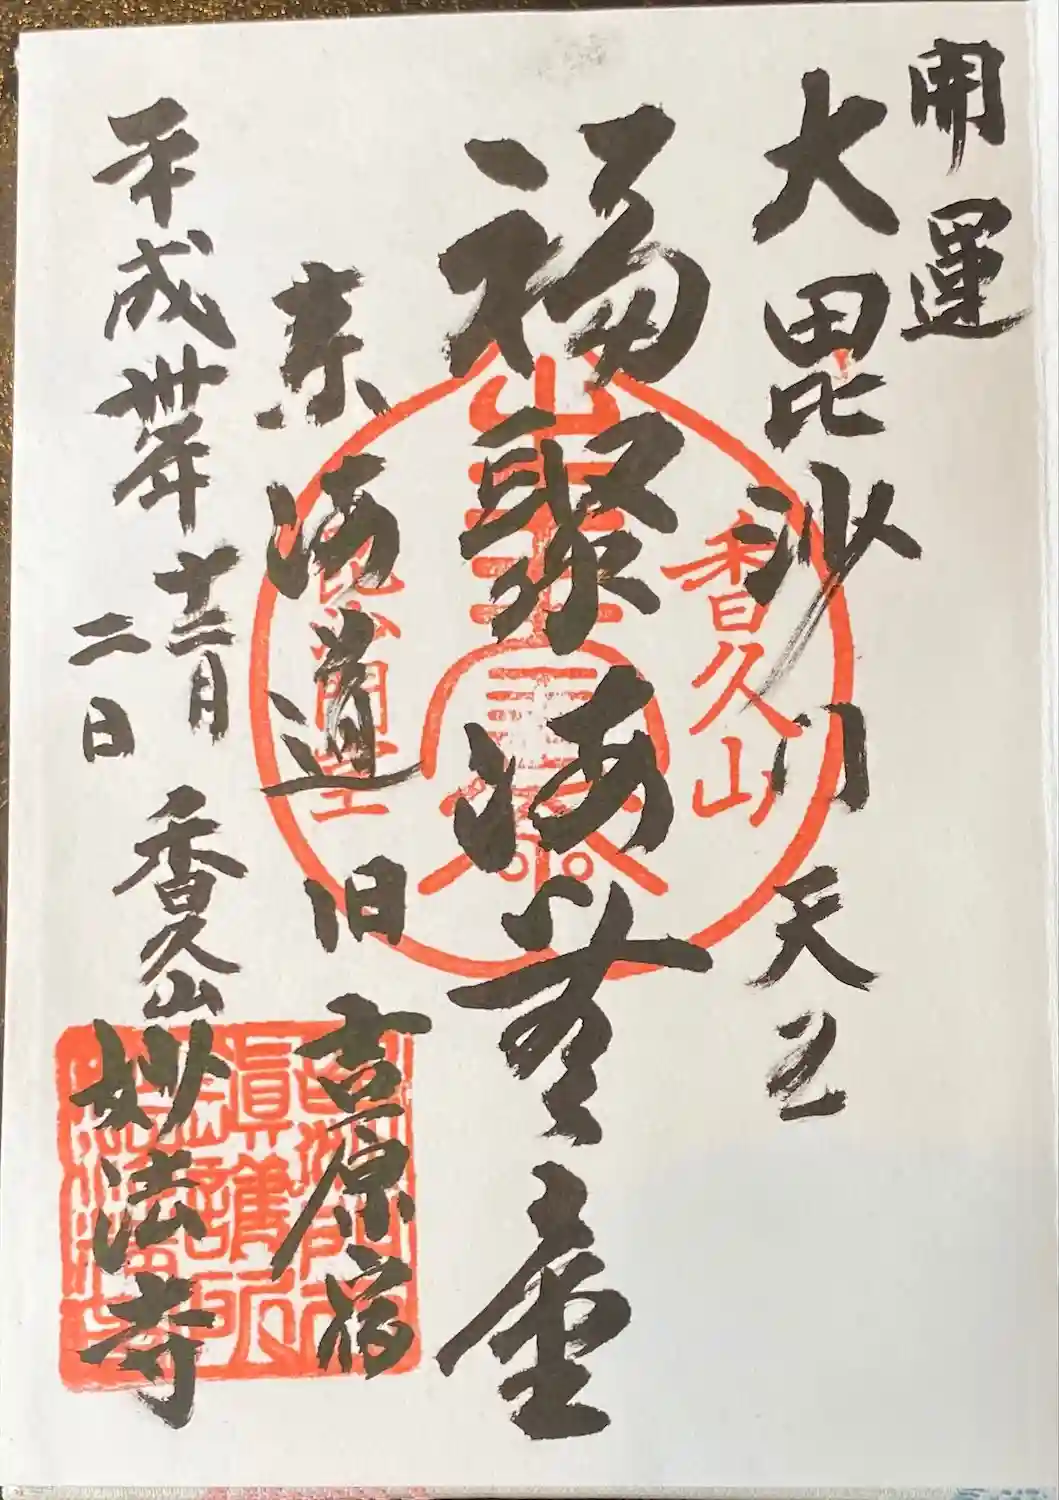 開運
大毘沙門天王
福聚海無量
東海道 旧 吉原宿
平成卅年 十二月
二日
香久山 妙法寺
香久山
毘沙門堂